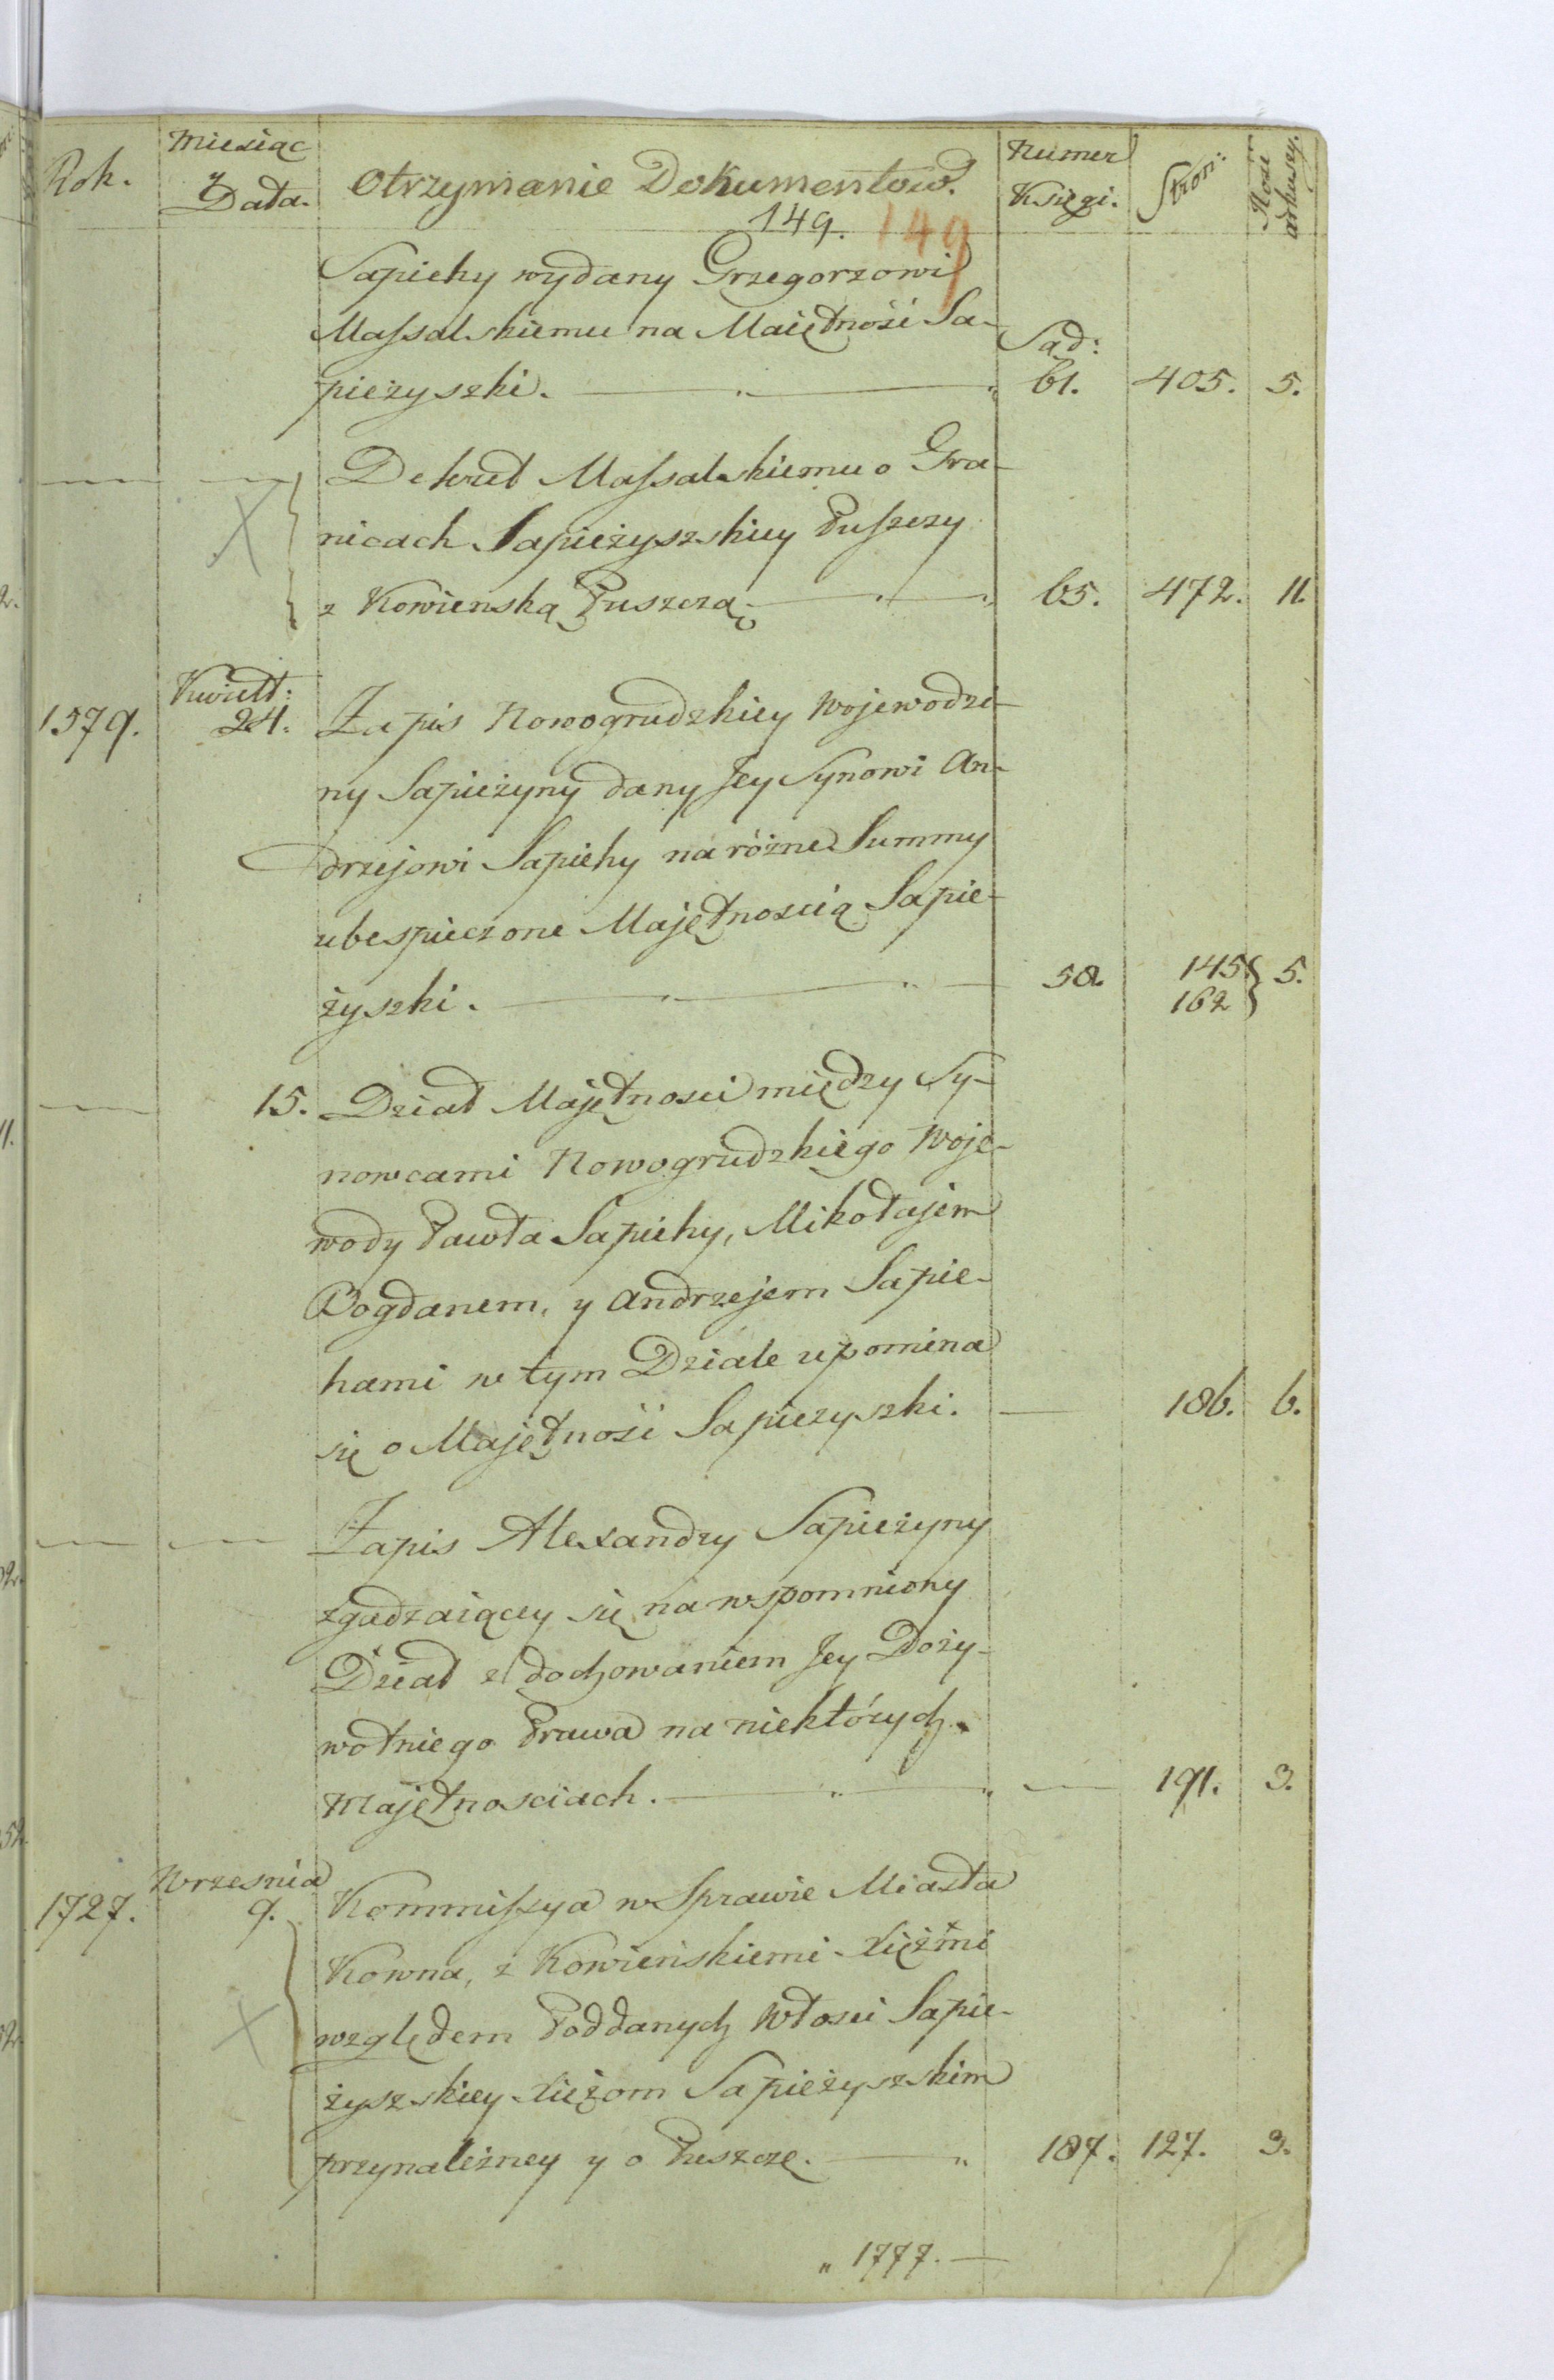 Rok. Miesiąc y Data. Otrzymanie Dokumentow. Numer Księgi. Stron: Ilość arkuszy.
149. 149
Sapiehy wydany Grzegorzowi
Massalskiemu na Maiętnośi Sa- Sąd:
pieżyszki. 61. 405. 5.
Dekret Massalskiemu o Gra-
nicach Sapieżyszskiey Puszczy
z Kowienską Puszczą. 65. 472. 11.
Kwiett:
1579. 24. Zapis Nowogrudzkiey Wojewodzi-
ny Sapieżyny dany Jey Synowi An-
drzejowi Sapiehy na różne Summy
ubespieczone Majętnoscią Sapie-
żyszki. 58. 145. 162 } 5.
15. Dział Majętnosci między Sy-
nowcami Nowogrudzkiego Woje-
wody Pawła Sapiehy, Mikołajem
Bogdanem, y Andrzejem Sapie-
hami w tym Dziale upomina
się o Majętnośi Sapieżyszki. 186. 6.
Zapis Alexandry Sapieżyny
zgadzaiącey się na wspomniony
Dział z dochowaniem Jey Doży-
wotniego Prawa na niektórych
Majętnosciach. 191. 3.
Wrzesnia
1727. 9. Kommissya w Sprawie Miasta
Kowna, z Kowieńskiemi Xiężmi
względem Poddanych Włosci Sapie-
żyszskiey Xiężom Sapieżyszskim
przynależney y o Puszczę. 187. 127. 3.
" 1777.